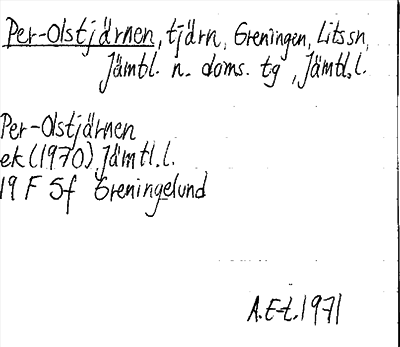 Per-Olstjärnen, tjärn, Greningen, Lits sn,
Jämtl. n. doms. tg, Jämtl.l.
Per-Olstjärnen
ek (1970) Jämtl.l.
19 F 5f Greningelund
A.E-t. 1971